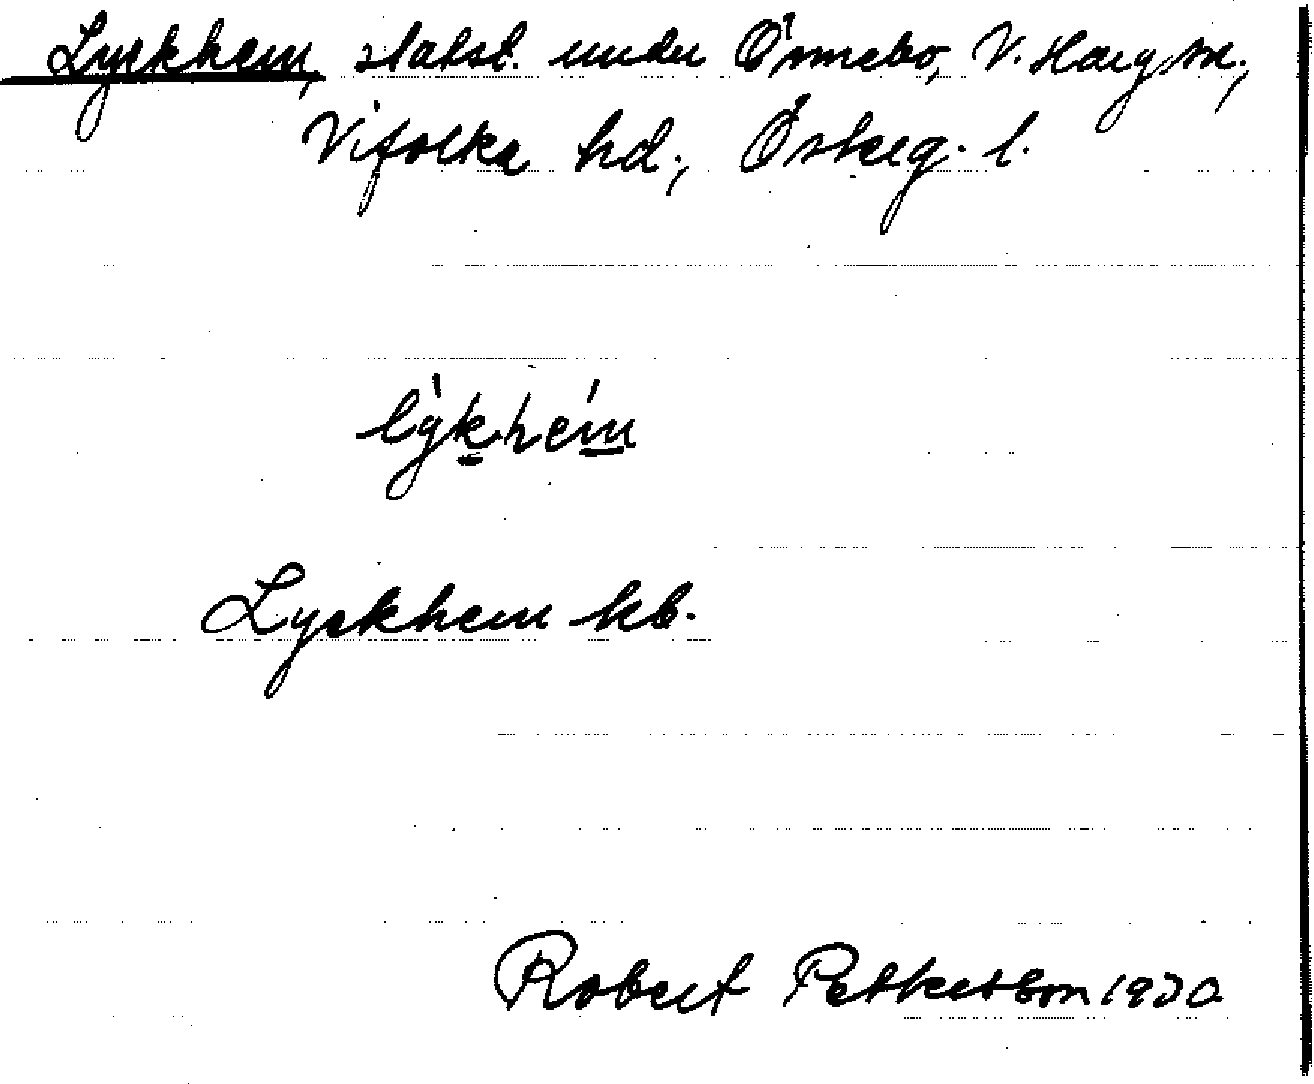 Lyckhem, slabst. under Önnebo, V. Harg sn.,
Vifolka hd., Österg. l.
lỳkhém
Lyckhem kb.
Robert Pettersson 1930